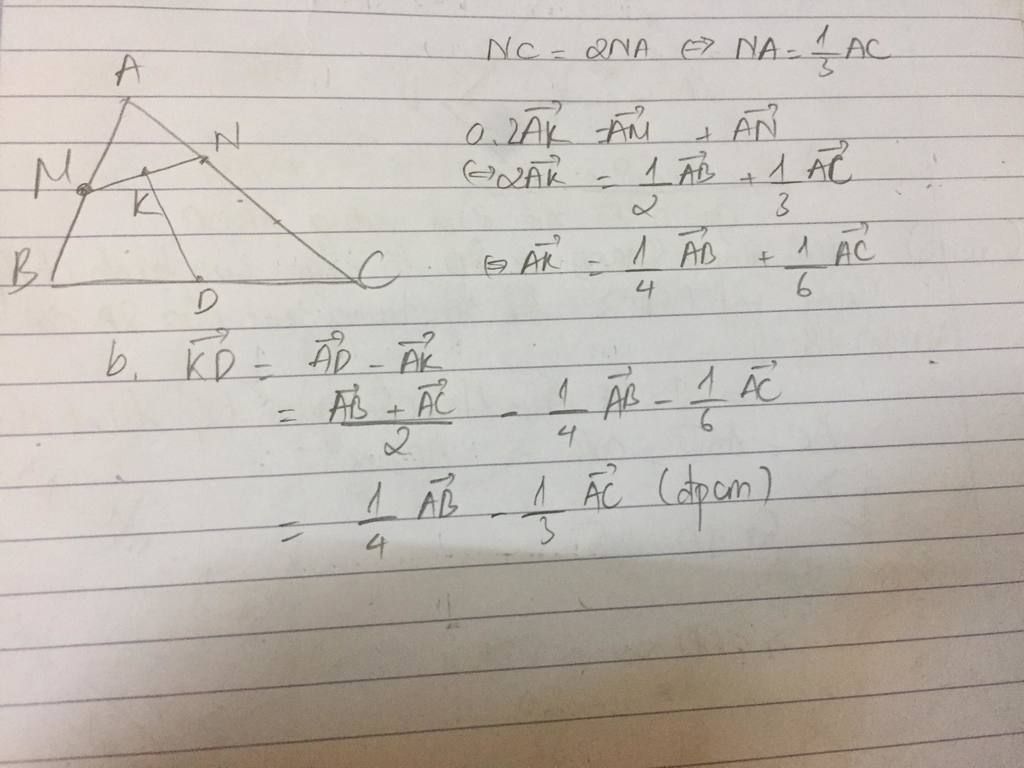 A
M
N
K
B
D
C
NC = 2NA ⇔ NA = 1/3 AC
a. 2AK⃗ = AM⃗ + AN⃗
⇔ 2AK⃗ = 1/2 AB⃗ + 1/3 AC⃗
⇔ AK⃗ = 1/4 AB⃗ + 1/6 AC⃗
b. KD⃗ = AD⃗ - AK⃗
= (AB⃗ + AC⃗)/2 - 1/4 AB⃗ - 1/6 AC⃗
= 1/4 AB⃗ - 1/3 AC⃗ (đpcm)